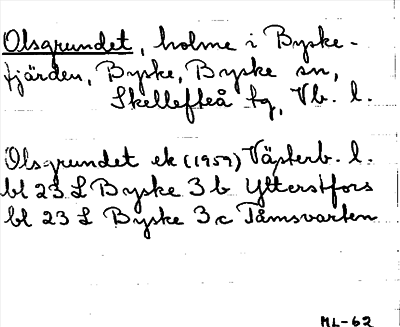 Olsgrundet, holme i Byske-
fjärden, Byske, Byske sn,
Skellefteå tg, Vb. l.
Olsgrundet ek (1959) Västerb. l.
bl 23 L Byske 3 b Ytterstfors
bl 23 L Byske 3 c Tåmsvarten
ML-62